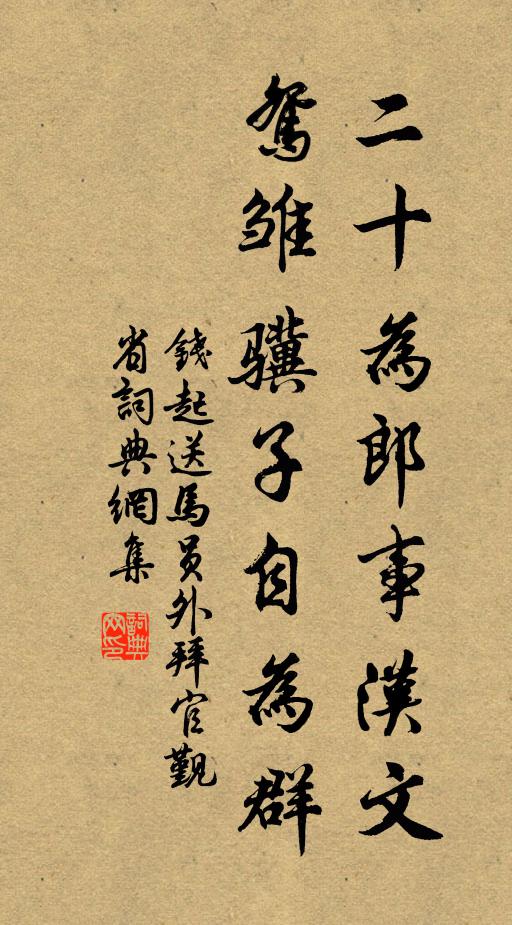 二十為郎事漢文
鴛雛驥子自為群
錢起送馬員外拜官覲
省詞典網集
詞典網印